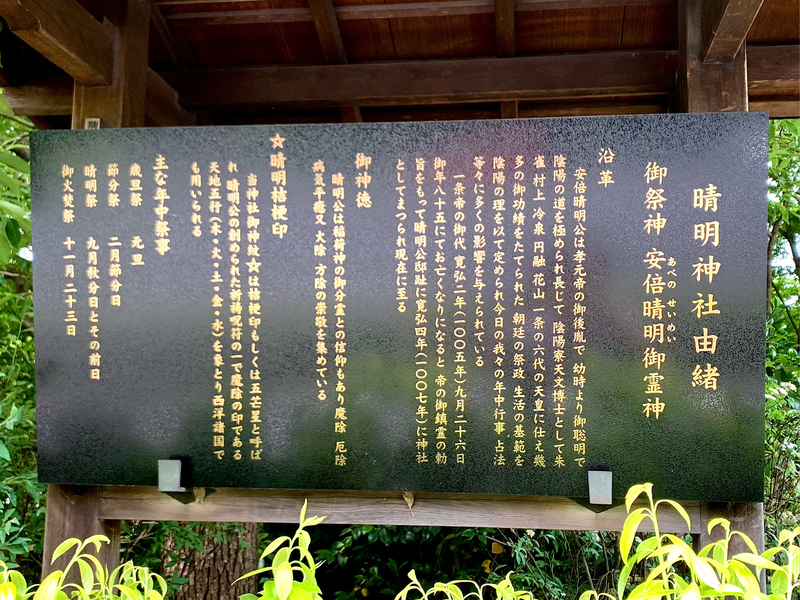 晴明神社由緒
御祭神 安倍晴明御霊神
あべの せいめい
沿革
安倍晴明公は孝元帝の御後胤で 幼時より御聡明で
陰陽の道を極められ長じて 陰陽寮天文博士として朱
雀 村上 冷泉 円融 花山 一条の六代の天皇に仕え幾
多の御功績をたてられた 朝廷の祭政 生活の基範を
陰陽の理を以て定められ今日の我々の年中行事 占法
等々に多くの影響を与えられている
一条帝の御代 寛弘二年(一〇〇五年)九月二十六日
御年八十五にてお亡くなりになると 帝の御鎮霊の勅
旨をもって晴明公邸趾に寛弘四年(一〇〇七年)に神社
としてまつられ現在に至る
御神徳
晴明公は稲荷神の御分霊との信仰もあり魔除 厄除
病気平癒又 火除 方除の崇敬を集めている
★晴明桔梗印
当神社御神紋★は桔梗印もしくは五芒星と呼ば
れ 晴明公の創められた祈祷呪符の一で魔除の印である
天地五行(木・火・土・金・水)を象どり西洋諸国で
も用いられる
主な年中祭事
歳旦祭 元旦
節分祭 二月節分日
晴明祭 九月秋分日とその前日
御火焚祭 十一月二十三日